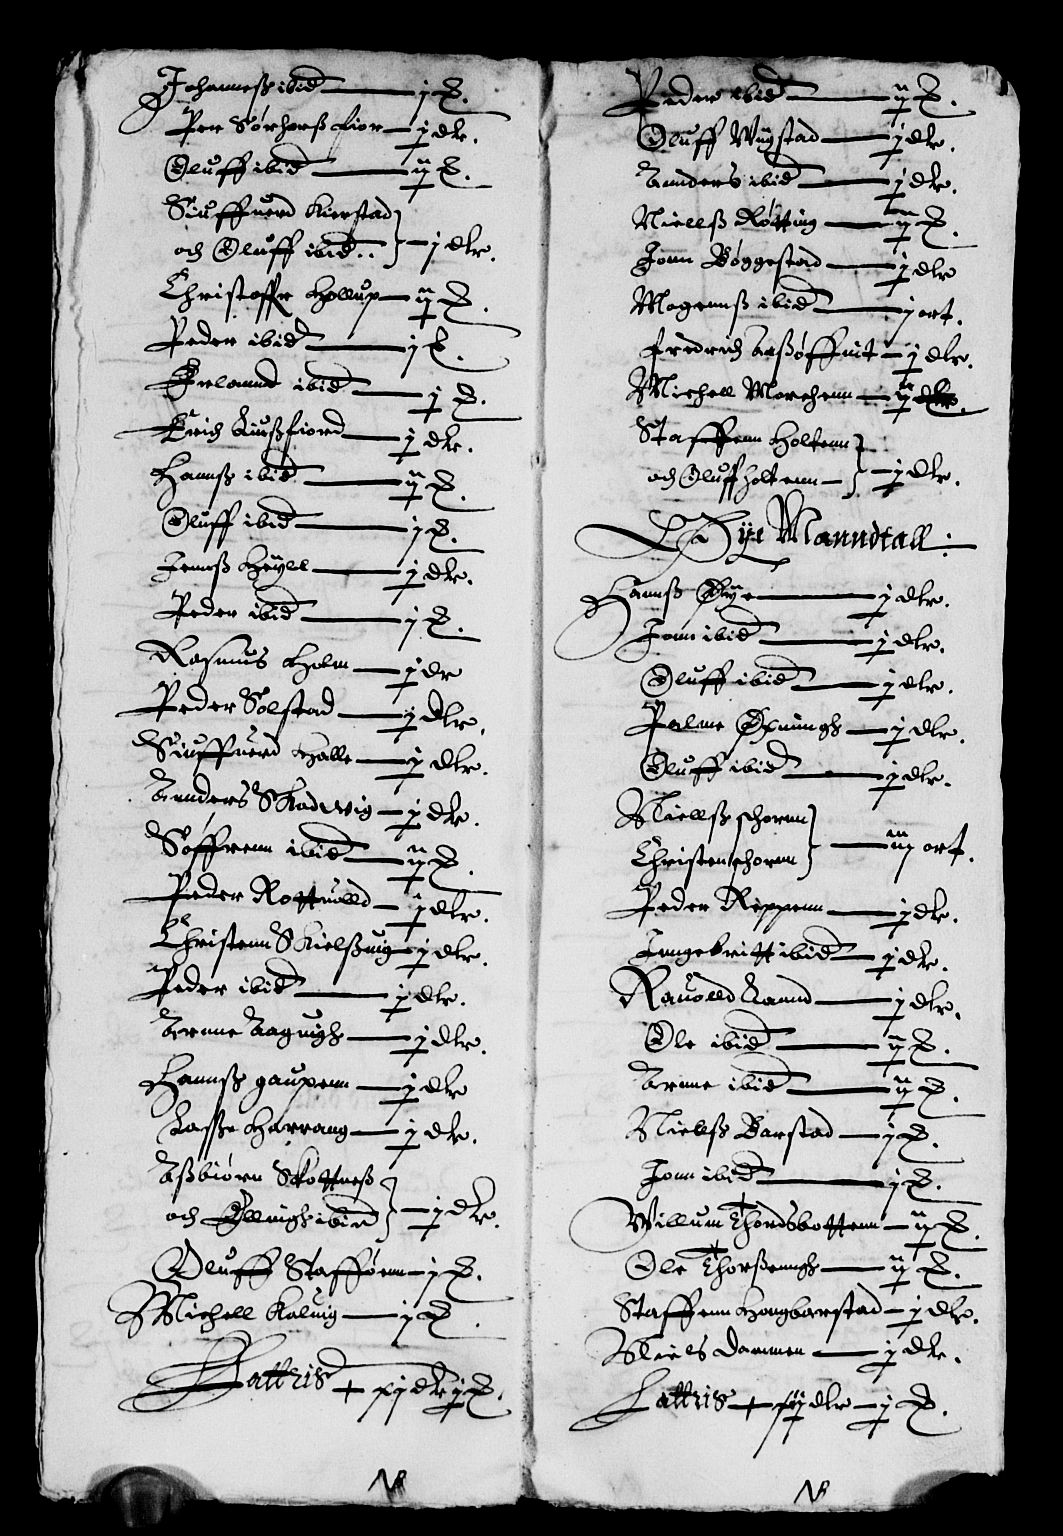 Johanneß ibid j
Per Sørherß fior j dlr.
Oluff ibid ij
Siuffuerd Kierstad
och Oluff ibid j dlr.
Christoffr Hollup ij
Peder ibid j
Erlannd ibid j
Erich Liußfiord j dlr.
Hannß ibid ij
Oluff ibid j
Jennß Høyll j dlr.
Peder ibid j
Rasmus Holm j dr
Peder Solstad j dlr.
Siuffuerd Halle j dlr.
Annders Skadwig j dlr.
Søffrenn ibid ij
Peder Rottuold j dlr.
Christenn Skielßuig j dlr.
Peder ibid j dlr.
Arnne Aagnigh j dlr.
Hannß gaupenn j dlr
Laße Harrang j dlr.
Aßbiørn Skottneß
och Ellingh ibid j dlr.
Oluff Staffønn j
Michell Kalnig j
Lattris xj dlr j

Peder ibid ij
Oluff Wiigstad j dlr.
Annders ibid j dlr.
Niellß Røtting ij
Jonn Bøggestad j dlr
Mogennß ibid j ort.
Fredrich j dlr.
Michell Morchenn ij
Staffenn Holtenn
och Oluff holtenn j dlr.
Øye Manndtall:
Hannß Øye j dlr.
Jonn ibid j dlr.
Oluff ibid j dlr.
Palme Øxningh j dlr.
Oluff ibid j dlr.
Niellß schornn
Christen schornn iiij ort.
Peder Reppenn j dlr.
Inngebritt ibid j dlr.
Rauolld Aannd j dlr.
Ole ibid ij
Arnne ibid ij
Niellß Barstad j
Jonn ibid j
Willum Thordsbottenn ij
Ole Thorßenngh ij
Staffenn Hougbarstad j dlr.
Niels Dammen j dlr.
Lattris dlr j